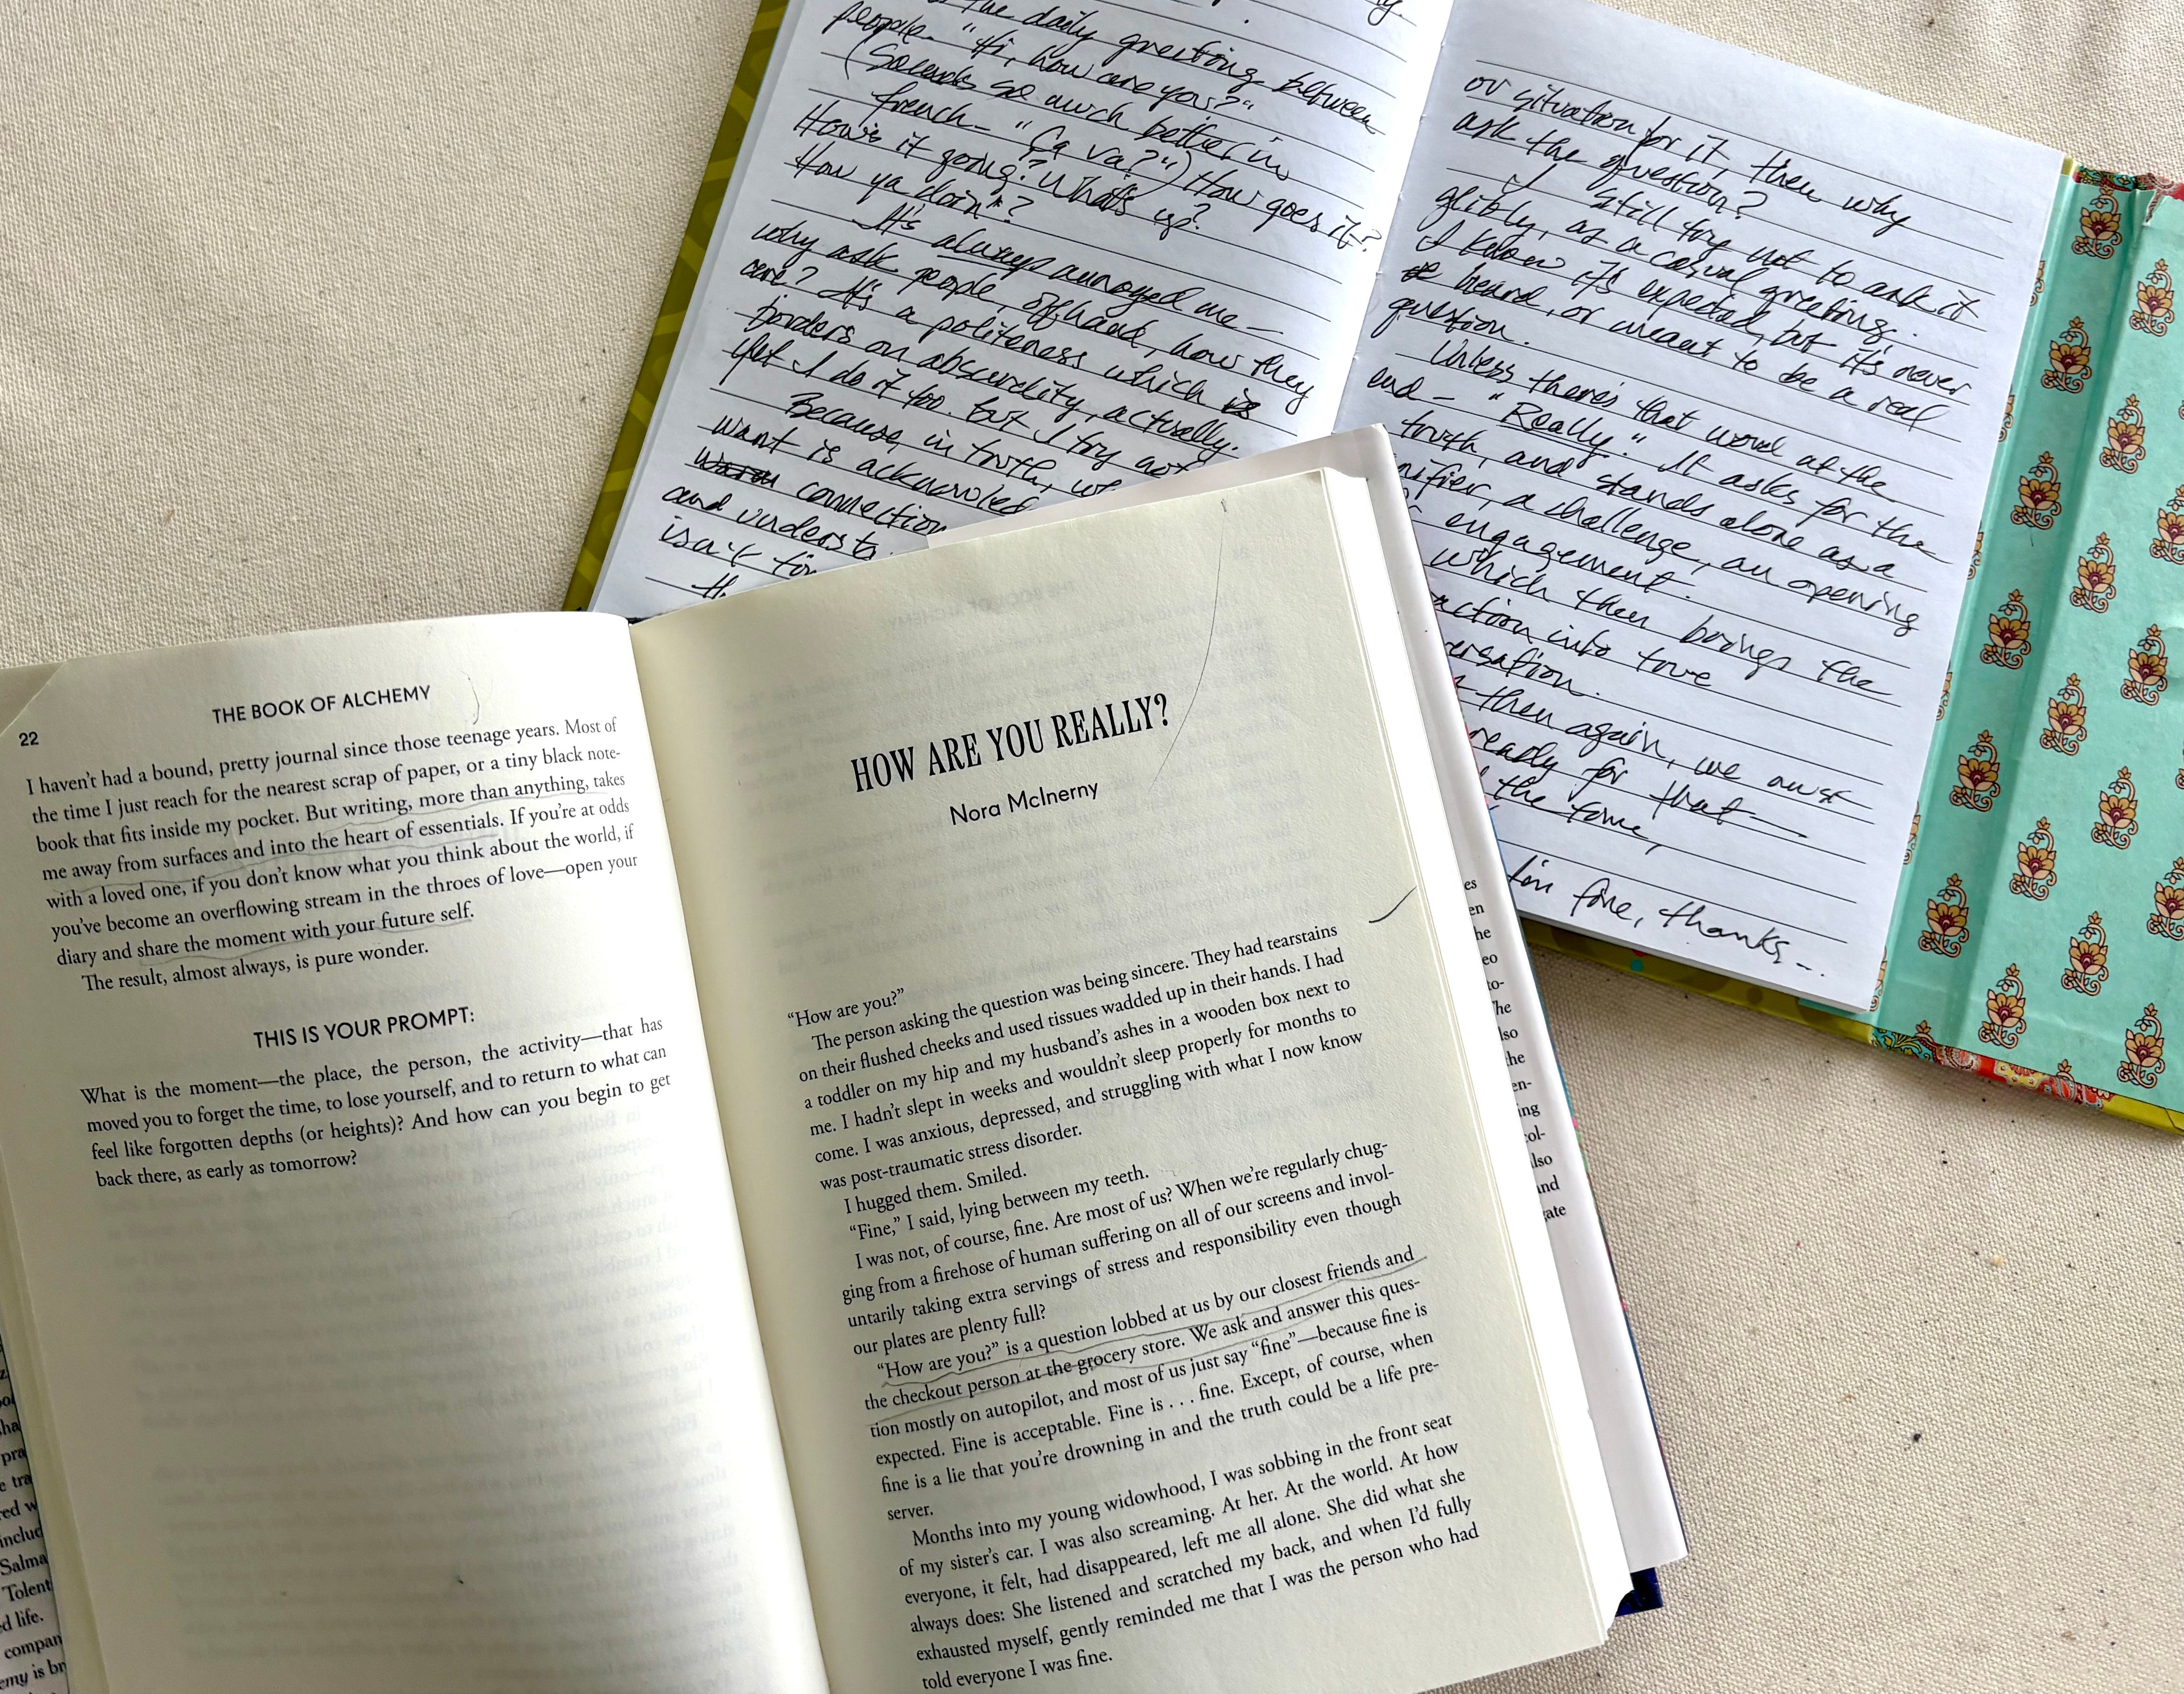 the daily greeting between
people. "Hi, how are you?"
(Sounds so much better in
french – "Ça va?") How goes it?
How's it going? What's up?
How ya doin'?
It's always annoyed me –
why ask people, offhand, how they
are? It's a politeness which is
borders on absurdity, actually.
Yet I do it too. but I try not
Because, in truth, we
want is acknowled
connection
and underst
isn't
or situation for it, then why
ask the question?
I still try not to ask it
glibly, as a casual greeting.
I know it's expected, but it's never
heard, or meant to be a real
question.
Unless there's that word at the
end – "Really." It asks for the
truth, and stands alone as a
nifier, a challenge, an opening
engagement.
which then brings the
action into true
ersation.
then again, we must
ready for that –
the time,
I'm fine, thanks...
22
THE BOOK OF ALCHEMY
I haven't had a bound, pretty journal since those teenage years. Most of
the time I just reach for the nearest scrap of paper, or a tiny black note-
book that fits inside my pocket. But writing, more than anything, takes
me away from surfaces and into the heart of essentials. If you're at odds
with a loved one, if you don't know what you think about the world, if
you've become an overflowing stream in the throes of love—open your
diary and share the moment with your future self.
The result, almost always, is pure wonder.
THIS IS YOUR PROMPT:
What is the moment—the place, the person, the activity—that has
moved you to forget the time, to lose yourself, and to return to what can
feel like forgotten depths (or heights)? And how can you begin to get
back there, as early as tomorrow?
HOW ARE YOU REALLY?
Nora McInerny
"How are you?"
The person asking the question was being sincere. They had tearstains
on their flushed cheeks and used tissues wadded up in their hands. I had
a toddler on my hip and my husband's ashes in a wooden box next to
me. I hadn't slept in weeks and wouldn't sleep properly for months to
come. I was anxious, depressed, and struggling with what I now know
was post-traumatic stress disorder.
I hugged them. Smiled.
"Fine," I said, lying between my teeth.
I was not, of course, fine. Are most of us? When we're regularly chug-
ging from a firehose of human suffering on all of our screens and invol-
untarily taking extra servings of stress and responsibility even though
our plates are plenty full?
"How are you?" is a question lobbed at us by our closest friends and
the checkout person at the grocery store. We ask and answer this ques-
tion mostly on autopilot, and most of us just say "fine"—because fine is
expected. Fine is acceptable. Fine is . . . fine. Except, of course, when
fine is a lie that you're drowning in and the truth could be a life pre-
server.
Months into my young widowhood, I was sobbing in the front seat
of my sister's car. I was also screaming. At her. At the world. At how
everyone, it felt, had disappeared, left me all alone. She did what she
always does: She listened and scratched my back, and when I'd fully
exhausted myself, gently reminded me that I was the person who had
told everyone I was fine.
es
en
he
eo
to-
The
lso
the
en-
ing
col-
lso
and
gate
pra
e tra
red w
includ
Salma
Tolent
ed life.
compan
emy is br